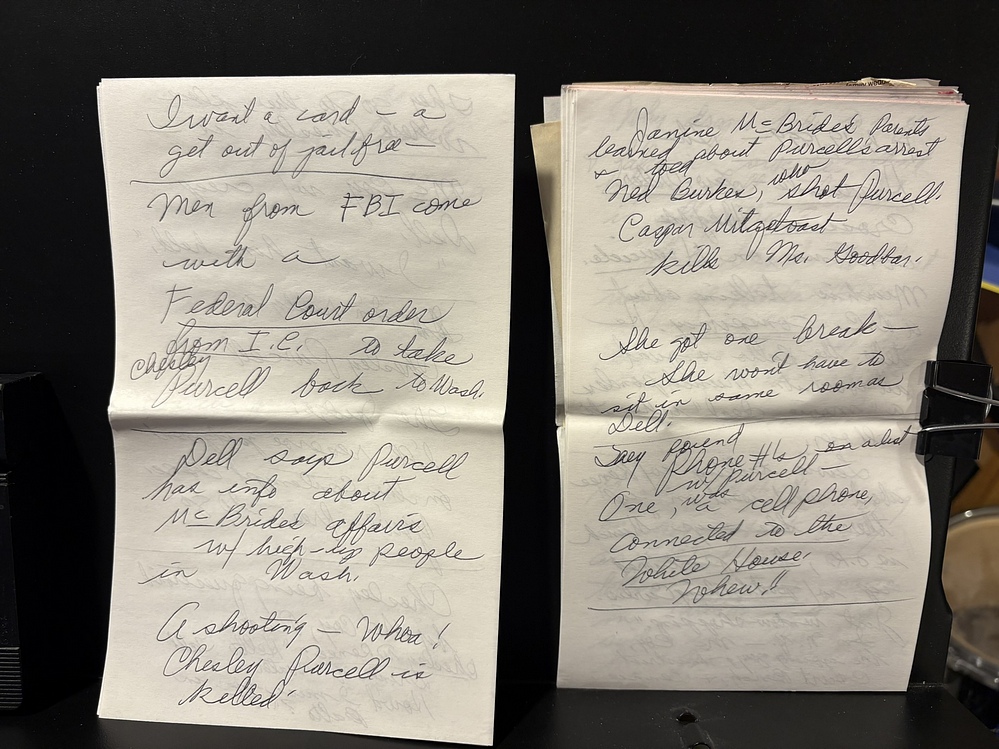 I want a card – a
get out of jail free –
Men from FBI come
with a
Federal Court order
from I.C. to take
Chesley
Purcell back to Wash.
Dell says Purcell
has info about
McBride's affairs
w/ high-up people
in Wash.
A shooting – Whoa!
Chesley Purcell is
killed.
Janine McBride's Parents
learned about Purcell's arrest
&
Ned Burkes, who shot Purcell.
Caspar
kills Ms. Goodbar.
She got one break –
She won't have to
sit in same room as
Dell.
They found
phone #'s on a list
w/ Purcell –
One, was a cell phone,
connected to the
White House.
Whew!!